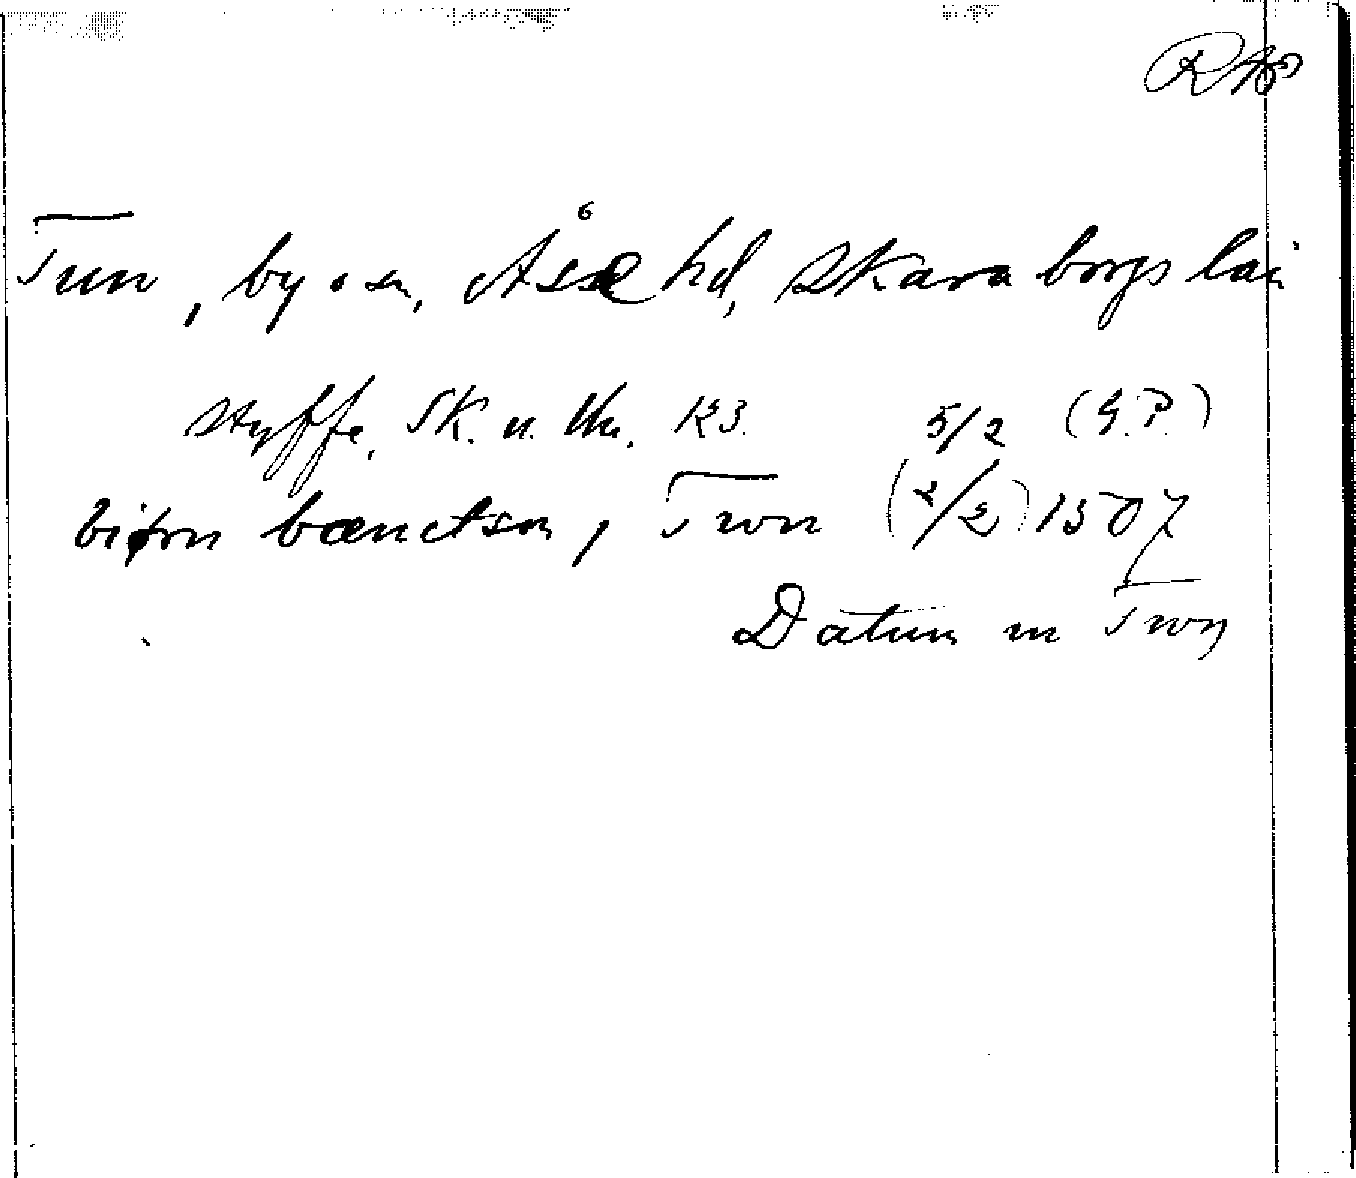 RAP
Tun, by o sn, Åse hd, Skaraborgs län
Styffe, Sk. u. Un. 123. 5/2 (G.P.)
biørn bænctson, Twn (2/2) 1507
Datum in Twn